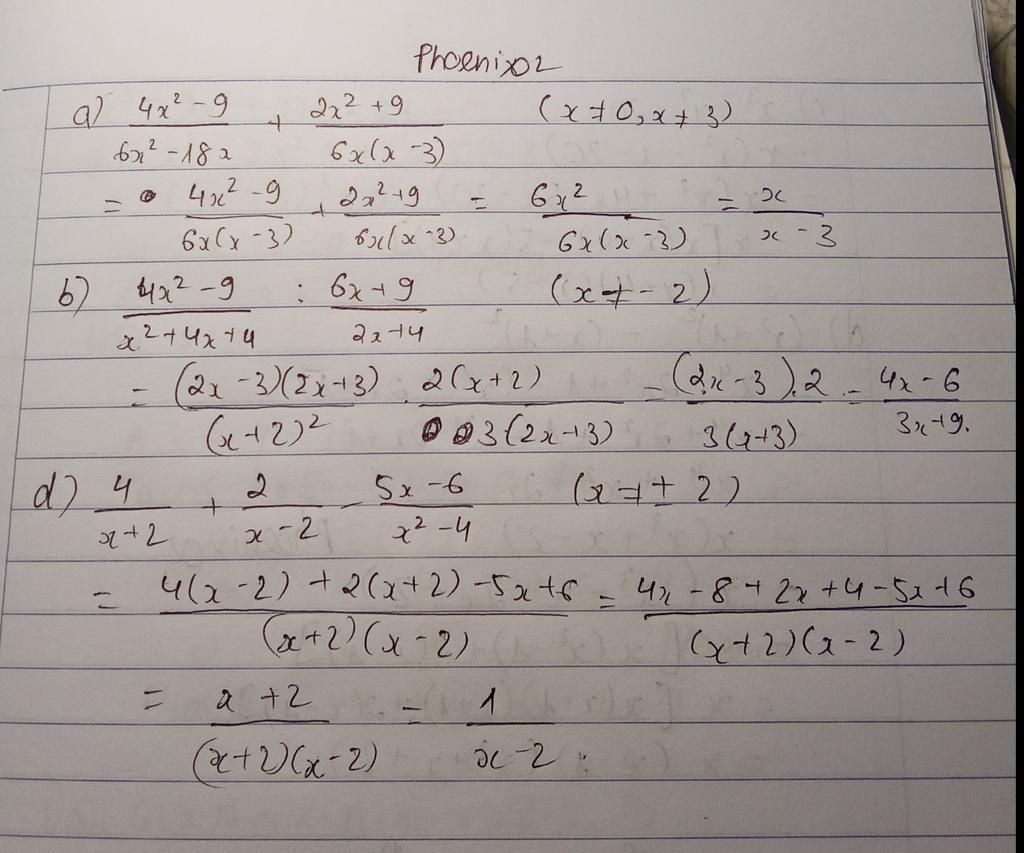 Phoenix02
a) (4x² - 9)/(6x² - 18x) + (2x² + 9)/(6x(x - 3)) (x ≠ 0, x ≠ 3)
= (4x² - 9)/(6x(x - 3)) + (2x² + 9)/(6x(x - 3)) = 6x²/(6x(x - 3)) = x/(x - 3)
b) (4x² - 9)/(x² + 4x + 4) : (6x + 9)/(2x + 4) (x ≠ - 2)
= ((2x - 3)(2x + 3))/((x + 2)²) . (2(x + 2))/(3(2x + 3)) = ((2x - 3).2)/(3(x + 3)) = (4x - 6)/(3x + 9).
d) 4/(x + 2) + 2/(x - 2) - (5x - 6)/(x² - 4) (x ≠ ± 2)
= (4(x - 2) + 2(x + 2) - 5x + 6)/((x + 2)(x - 2)) = (4x - 8 + 2x + 4 - 5x + 6)/((x + 2)(x - 2))
= (x + 2)/((x + 2)(x - 2)) = 1/(x - 2).